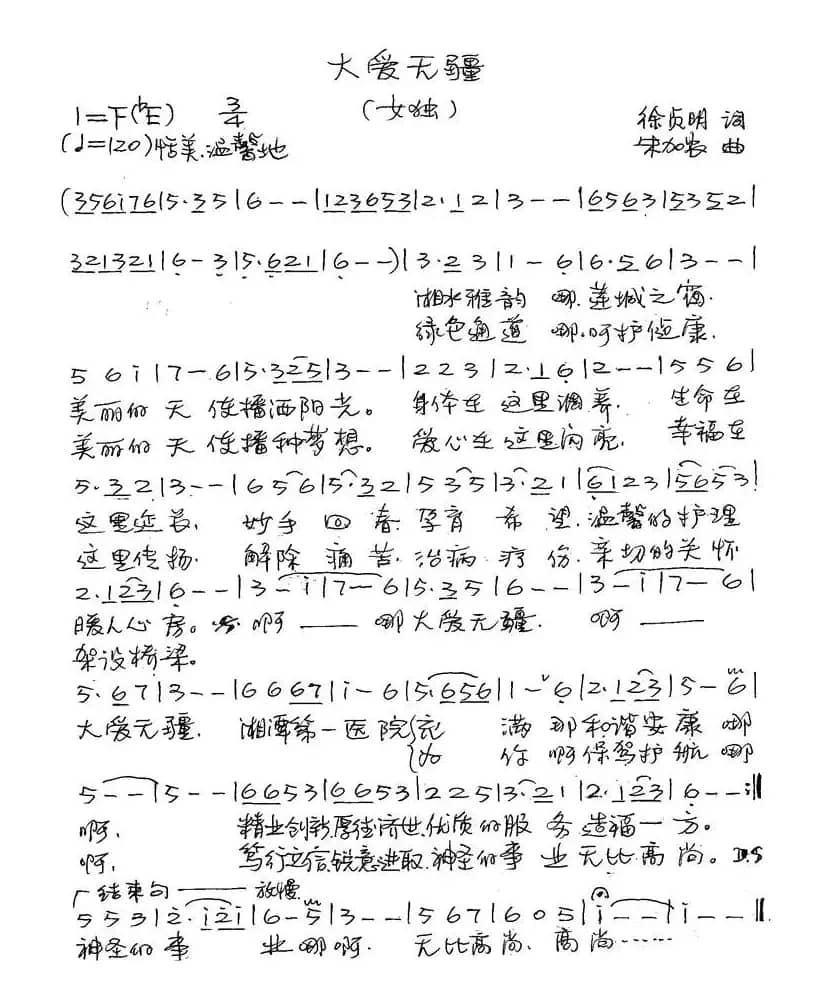 大爱无疆
1=F(♭E) 3/4 (女独) 徐贞明 词
(♩=120) 恬美.温馨地 宋加农 曲
(356i76|5·35|6--|123653|2·12|3--|6563|5352|
321321|6-3|5·621|6--)|3·23|1-6|6·56|3--|
湘水雅韵 哪.莲城之窗.
绿色通道 哪.呵护健康.
56i|7-6|5·325|3--|223|2·16|2--|556|
美丽的天使播洒阳光。 身体在这里调养. 生命在
美丽的天使播种梦想。 爱心在这里闪亮. 幸福在
5·32|3--|656|5·32|535|3·21|6123|5653|
这里延长. 妙手回春.孕育希望.温馨的护理
这里传扬. 解除痛苦.治病疗伤.亲切的关怀
2·123|6--|3-i|7-6|5·35|6--|3-i|7-6|
暖人心房。 啊—— 哪大爱无疆. 啊——
架设桥梁。
5·67|3--|6667|i-6|5·656|1-6|2·123|5-6|
大爱无疆. 湘潭第一医院{充 满 那和谐安康哪
{为 你 啊保驾护航哪
5--|5--|6653|6653|225|3·21|2·123|6--:‖
啊. 精业创新.厚德济世.优质的服务造福一方。
啊. 笃行立信.锐意进取.神圣的事业无比高尚。D.S
结束句——放慢
553|2·i2i|6-5|3--|567|605|i--|i--‖
神圣的事 业哪啊. 无比高尚.高尚……